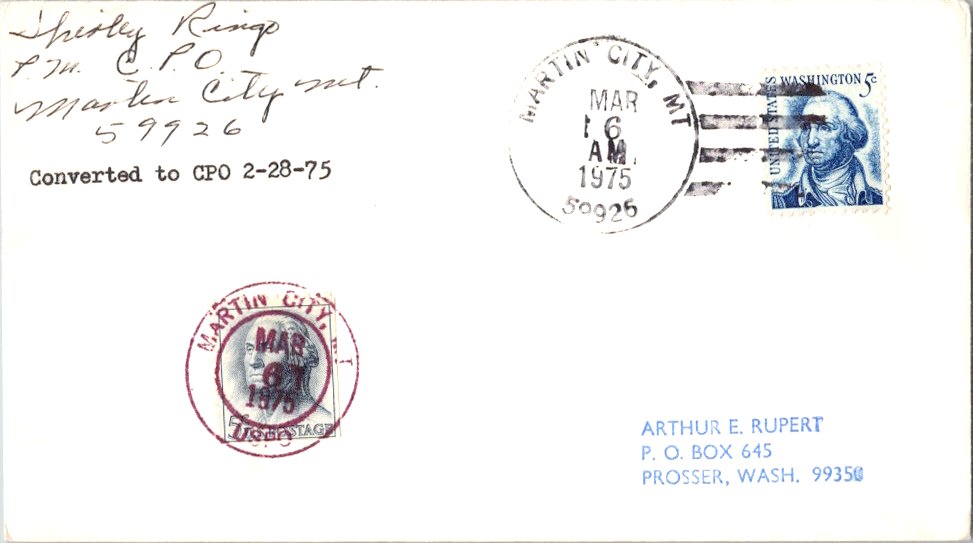 Shirley Ringo
P.M. C.P.O.
Martin City Mt.
59926
Converted to CPO 2-28-75
MARTIN CITY, MT
MAR
6
AM
1975
59926
UNITED STATES
WASHINGTON 5c
MARTIN CITY, MT
MAR
6
1975
USPO
5c U.S. POSTAGE
ARTHUR E. RUPERT
P. O. BOX 645
PROSSER, WASH. 99350